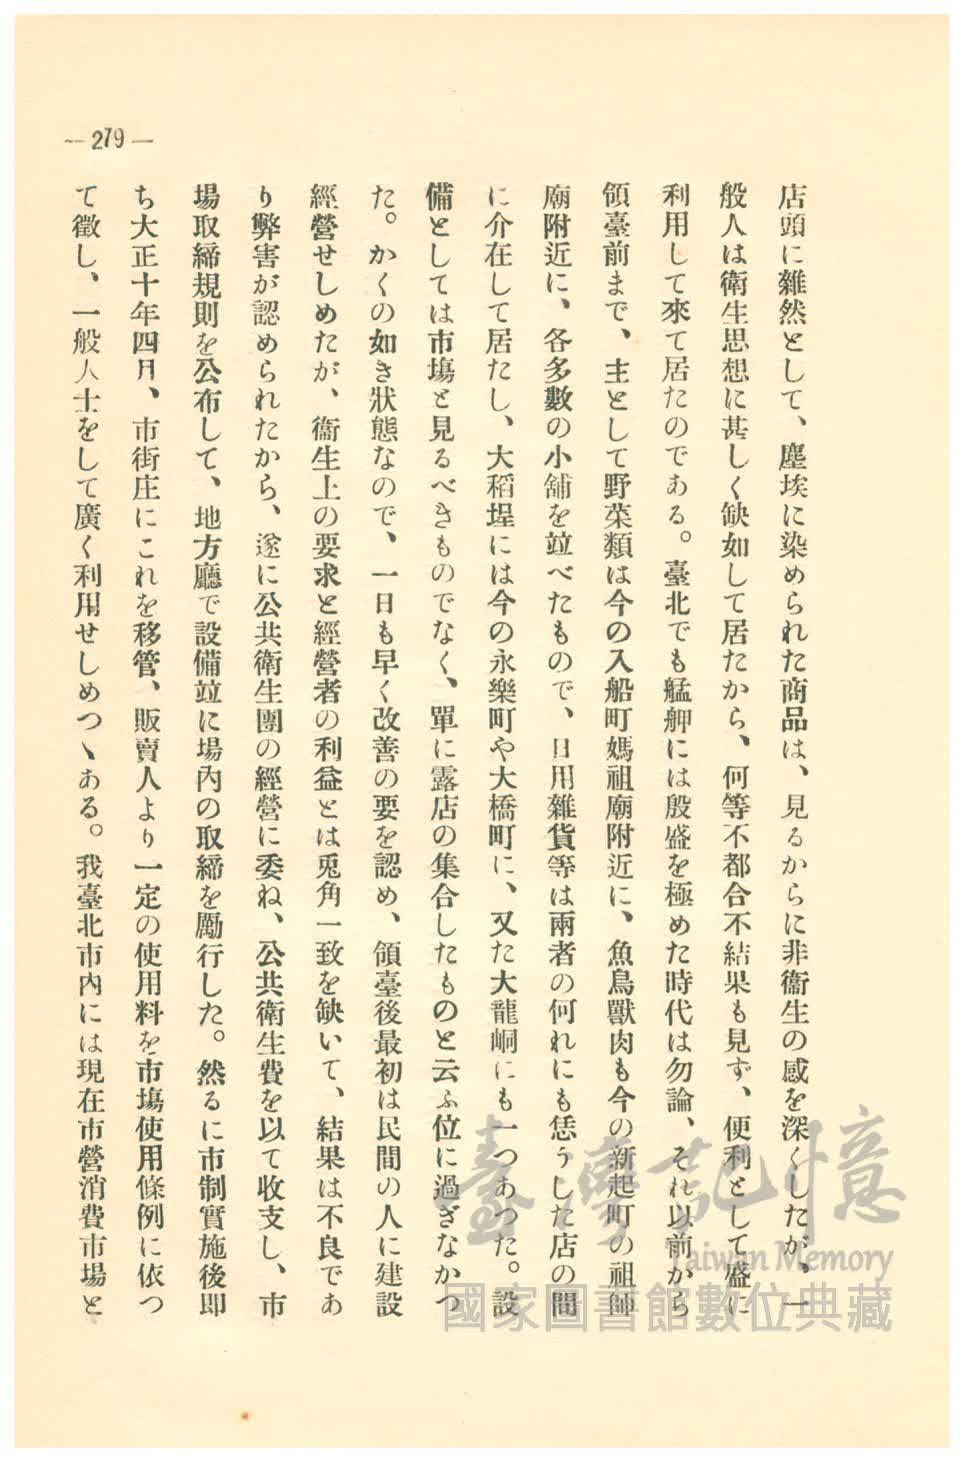 —279—
店頭に雜然として、塵埃に染められた商品は、見るからに非衞生の感を深くしたが、一
般人は衞生思想に甚しく缺如して居たから、何等不都合不結果も見ず、便利として盛に
利用して來て居たのである。臺北でも艋舺には殷盛を極めた時代は勿論、それ以前から
領臺前まで、主として野菜類は今の入船町媽祖廟附近に、魚鳥獸肉も今の新起町の祖師
廟附近に、各多數の小舖を竝べたもので、日用雜貨等は兩者の何れにも恁うした店の間
に介在して居たし、大稻埕には今の永樂町や大橋町に、又た大龍峒にも一つあつた。設
備としては市塲と見るべきものでなく、單に露店の集合したものと云ふ位に過ぎなかつ
た。かくの如き狀態なので、一日も早く改善の要を認め、領臺後最初は民間の人に建設
經營せしめたが、衞生上の要求と經營者の利益とは兎角一致を缺いて、結果は不良であ
り弊害が認められたから、遂に公共衞生團の經營に委ね、公共衞生費を以て收支し、市
場取締規則を公布して、地方廳で設備竝に場內の取締を勵行した。然るに市制實施後卽
ち大正十年四月、市街庄にこれを移管、販賣人より一定の使用料を市塲使用條例に依つ
て徵し、一般人士をして廣く利用せしめつヽある。我臺北市內には現在市營消費市場と
臺灣記憶
Taiwan Memory
國家圖書館數位典藏